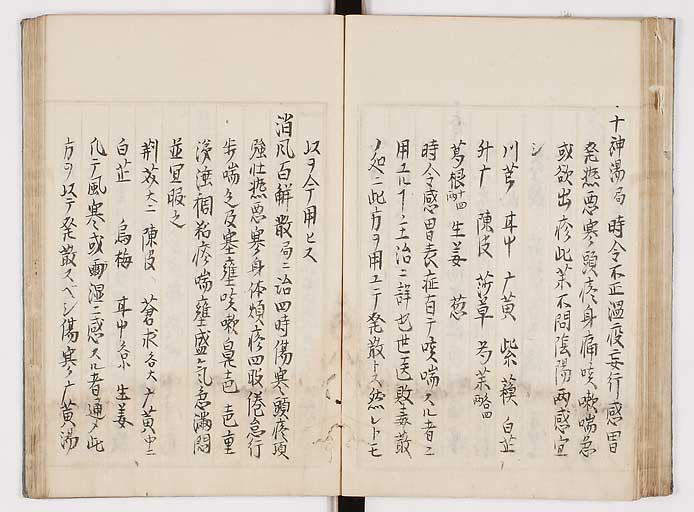 十神湯局 時令不正温疫妄行感冒
発熱悪寒頭疼身痛咳嗽喘急
或欲出疹此薬不問陰陽両感宜
シ
川芎 甘中 广黄 紫蘓 白芷
升广 陳皮 莎草 芍薬
葛根 生姜 葱
時令感冒表症有テ咳喘スル者ニ
用ユル
主治ニ詳也世医敗毒散
ノ処ニ此方ヲ用ユテ発散トス然レトモ
以ヲ今用ヒス
消風百解散局ニ治四時傷寒頭疼項
強壮熱悪寒身体煩疼四肢倦怠行
歩喘乏及寒壅咳嗽鼻
重
涕
稠粘疼喘壅盛気急満悶
並宜服之
荆芥大 陳皮 蒼朮各大 广黄中
白芷 烏梅 甘中各小 生姜
凡テ風寒或雨湿ニ感スル者速ニ此
方ヲ以テ発散スベシ傷寒ノ广黄湯